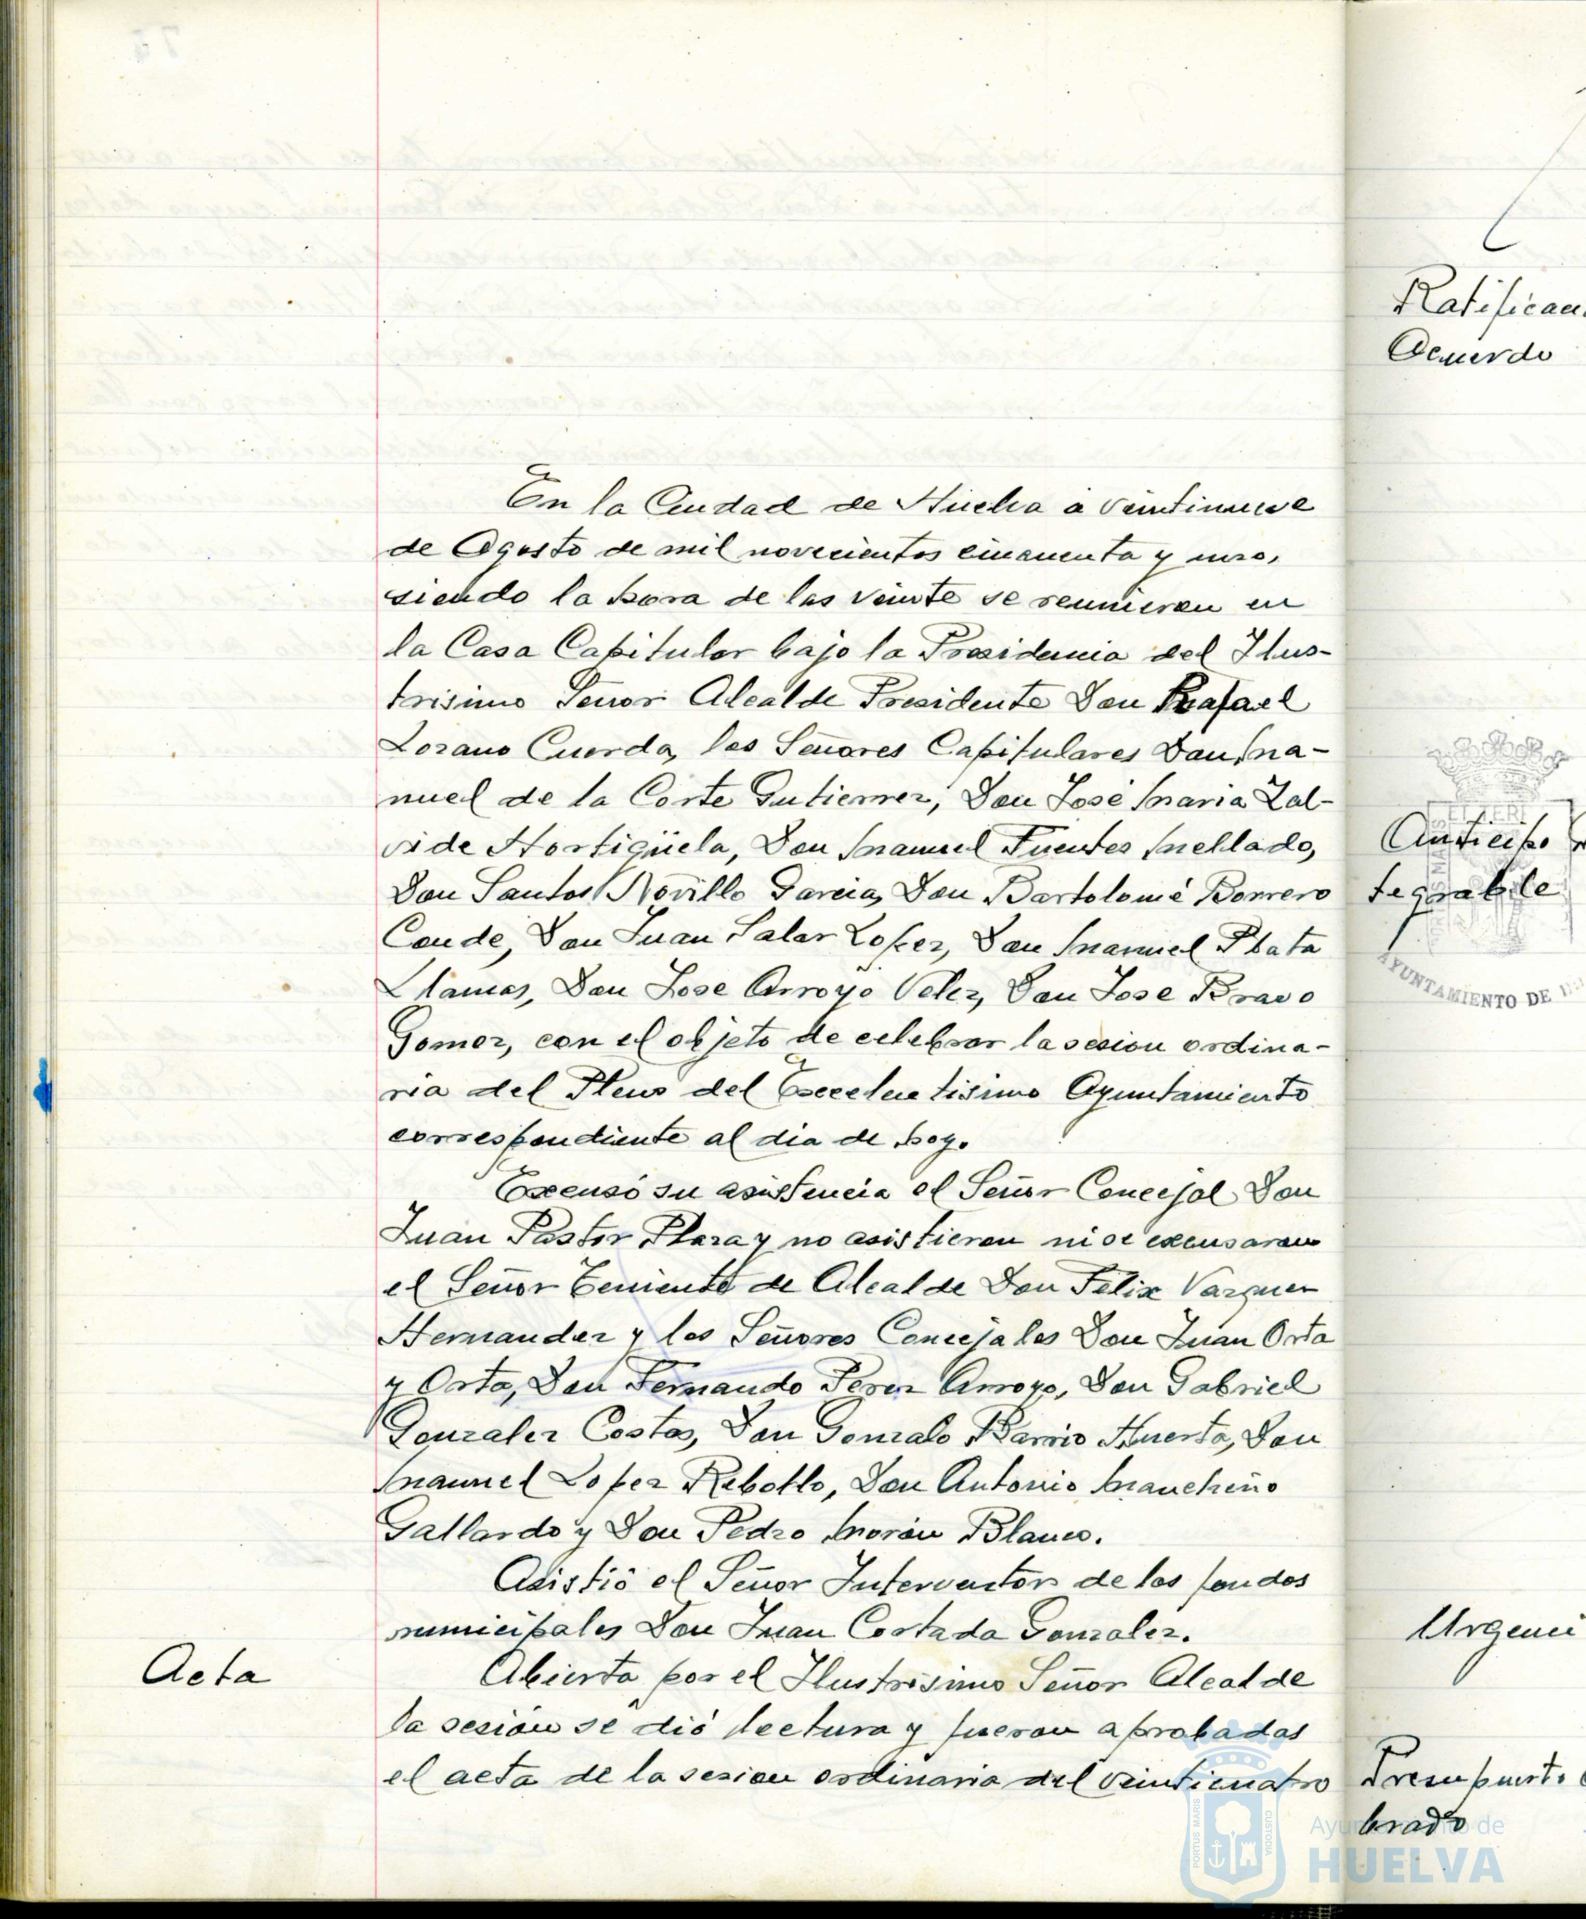 En la Ciudad de Huelva a veintinueve
de Agosto de mil novecientos cincuenta y uno,
siendo la hora de las veinte se reunieron en
la Casa Capitular bajo la Presidencia del Ilus-
trisimo Señor Alcalde Presidente Don Rafael
Lozano Cuerda, los Señores Capitulares Don Ma-
nuel de la Corte Gutierrez, Don José Maria Zal-
vide Hortigüela, Don Manuel Fuentes Mellado,
Don Santos Novillo Garcia, Don Bartolomé Borrero
Conde, Don Juan Salar Lopez, Don Manuel Plata
Llamas, Don Jose Arroyo Velez, Don Jose Bravo
Gomez, con el objeto de celebrar la sesion ordina-
ria del Pleno del Excelentisimo Ayuntamiento
correspondiente al dia de hoy.
Excusó su asistencia el Señor Concejal Don
Juan Pastor Plaza y no asistieron ni se excusaron
el Señor Teniente de Alcalde Don Felix Vazquez
Hernandez y los Señores Concejales Don Juan Orta
y Orta, Don Fernando Perez Arroyo, Don Gabriel
Gonzalez Costas, Don Gonzalo Barrio Huerta, Don
Manuel Lopez Rebollo, Don Antonio Mancheño
Gallardo y Don Pedro Morón Blanco.
Asistió el Señor Interventor de los fondos
municipales Don Juan Cortada Gonzalez.
Acta
Abierta por el Ilustrisimo Señor Alcalde
la sesión se dió lectura y fueron aprobadas
el acta de la sesion ordinaria del veinticuatro
Ratificaci
Acuerdo
Anticipo
tegrable
AYUNTAMIENTO DE
Urgenci
Presupuesto
brado
PORTUS MARIS
CUSTODIA
Ayuntamiento de
HUELVA